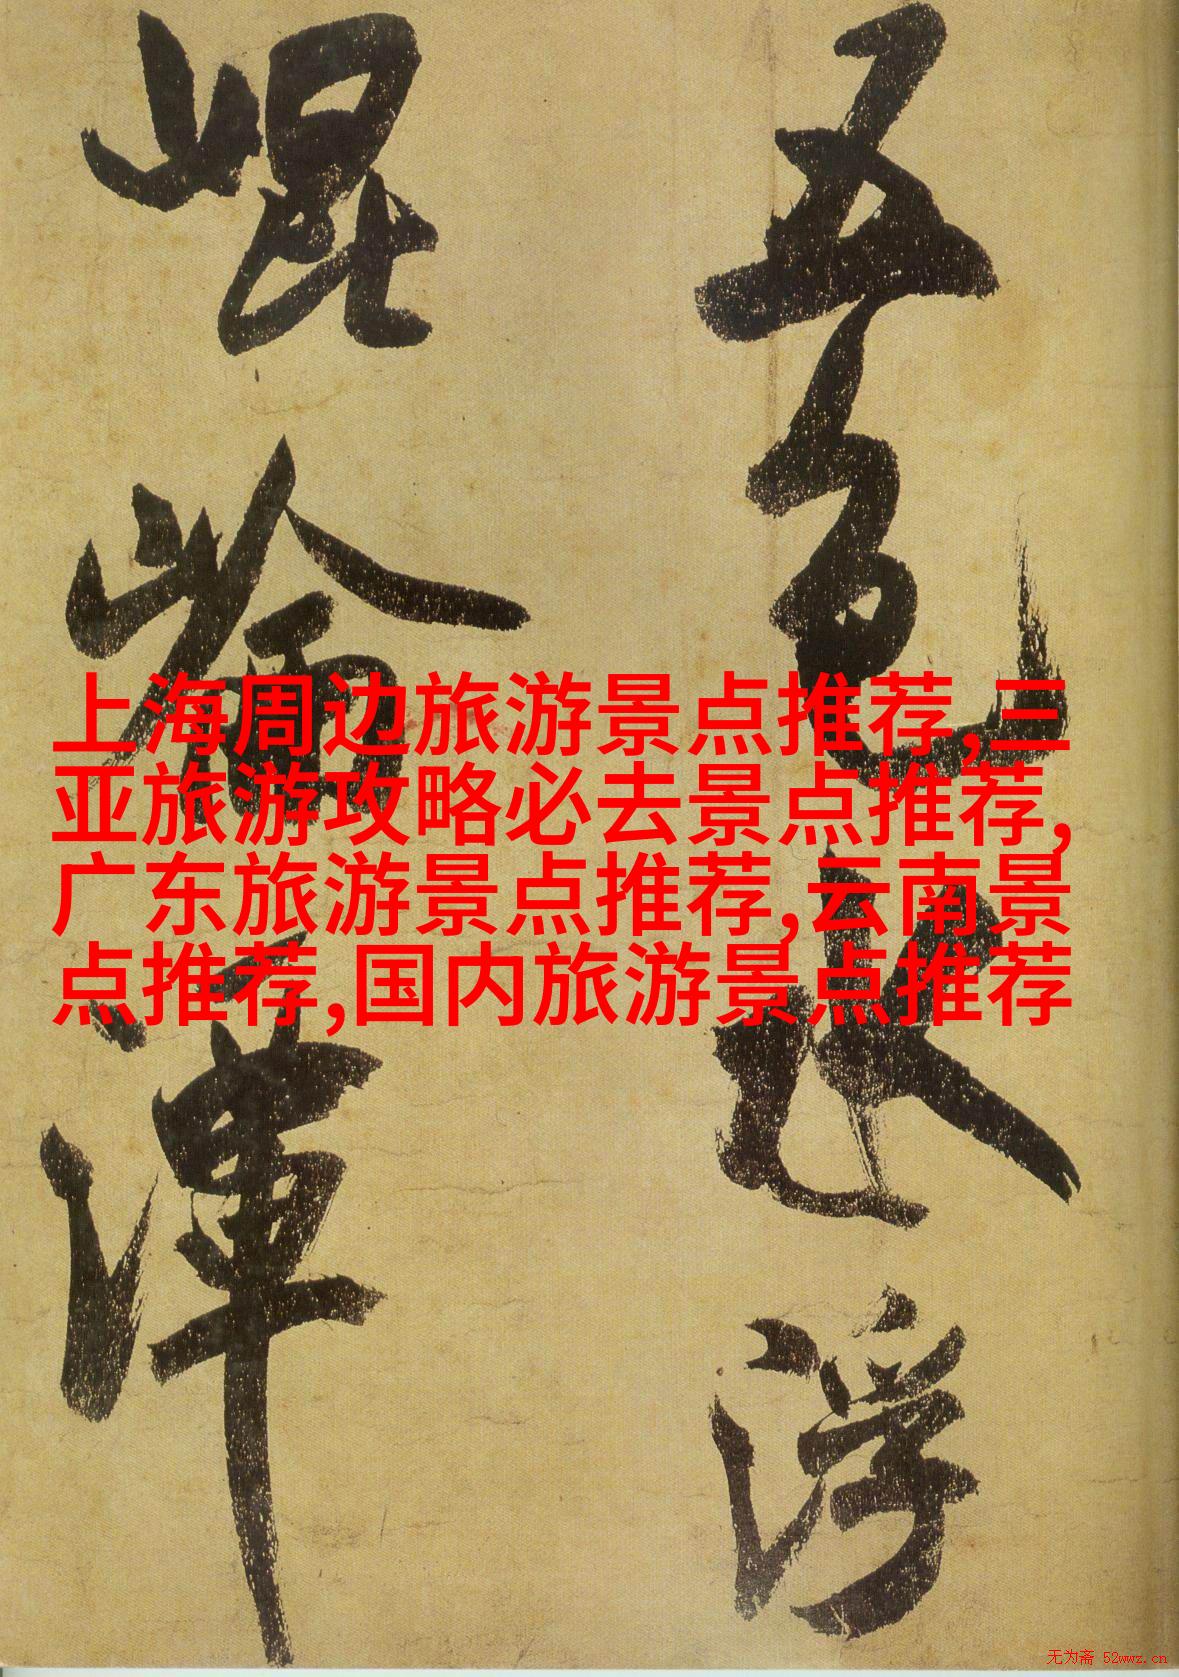 五色水浮
崐崘渾
上海周边旅游景点推荐,三
亚旅游攻略必去景点推荐,
广东旅游景点推荐,云南景
点推荐,国内旅游景点推荐
无为斋 52wwz.cn